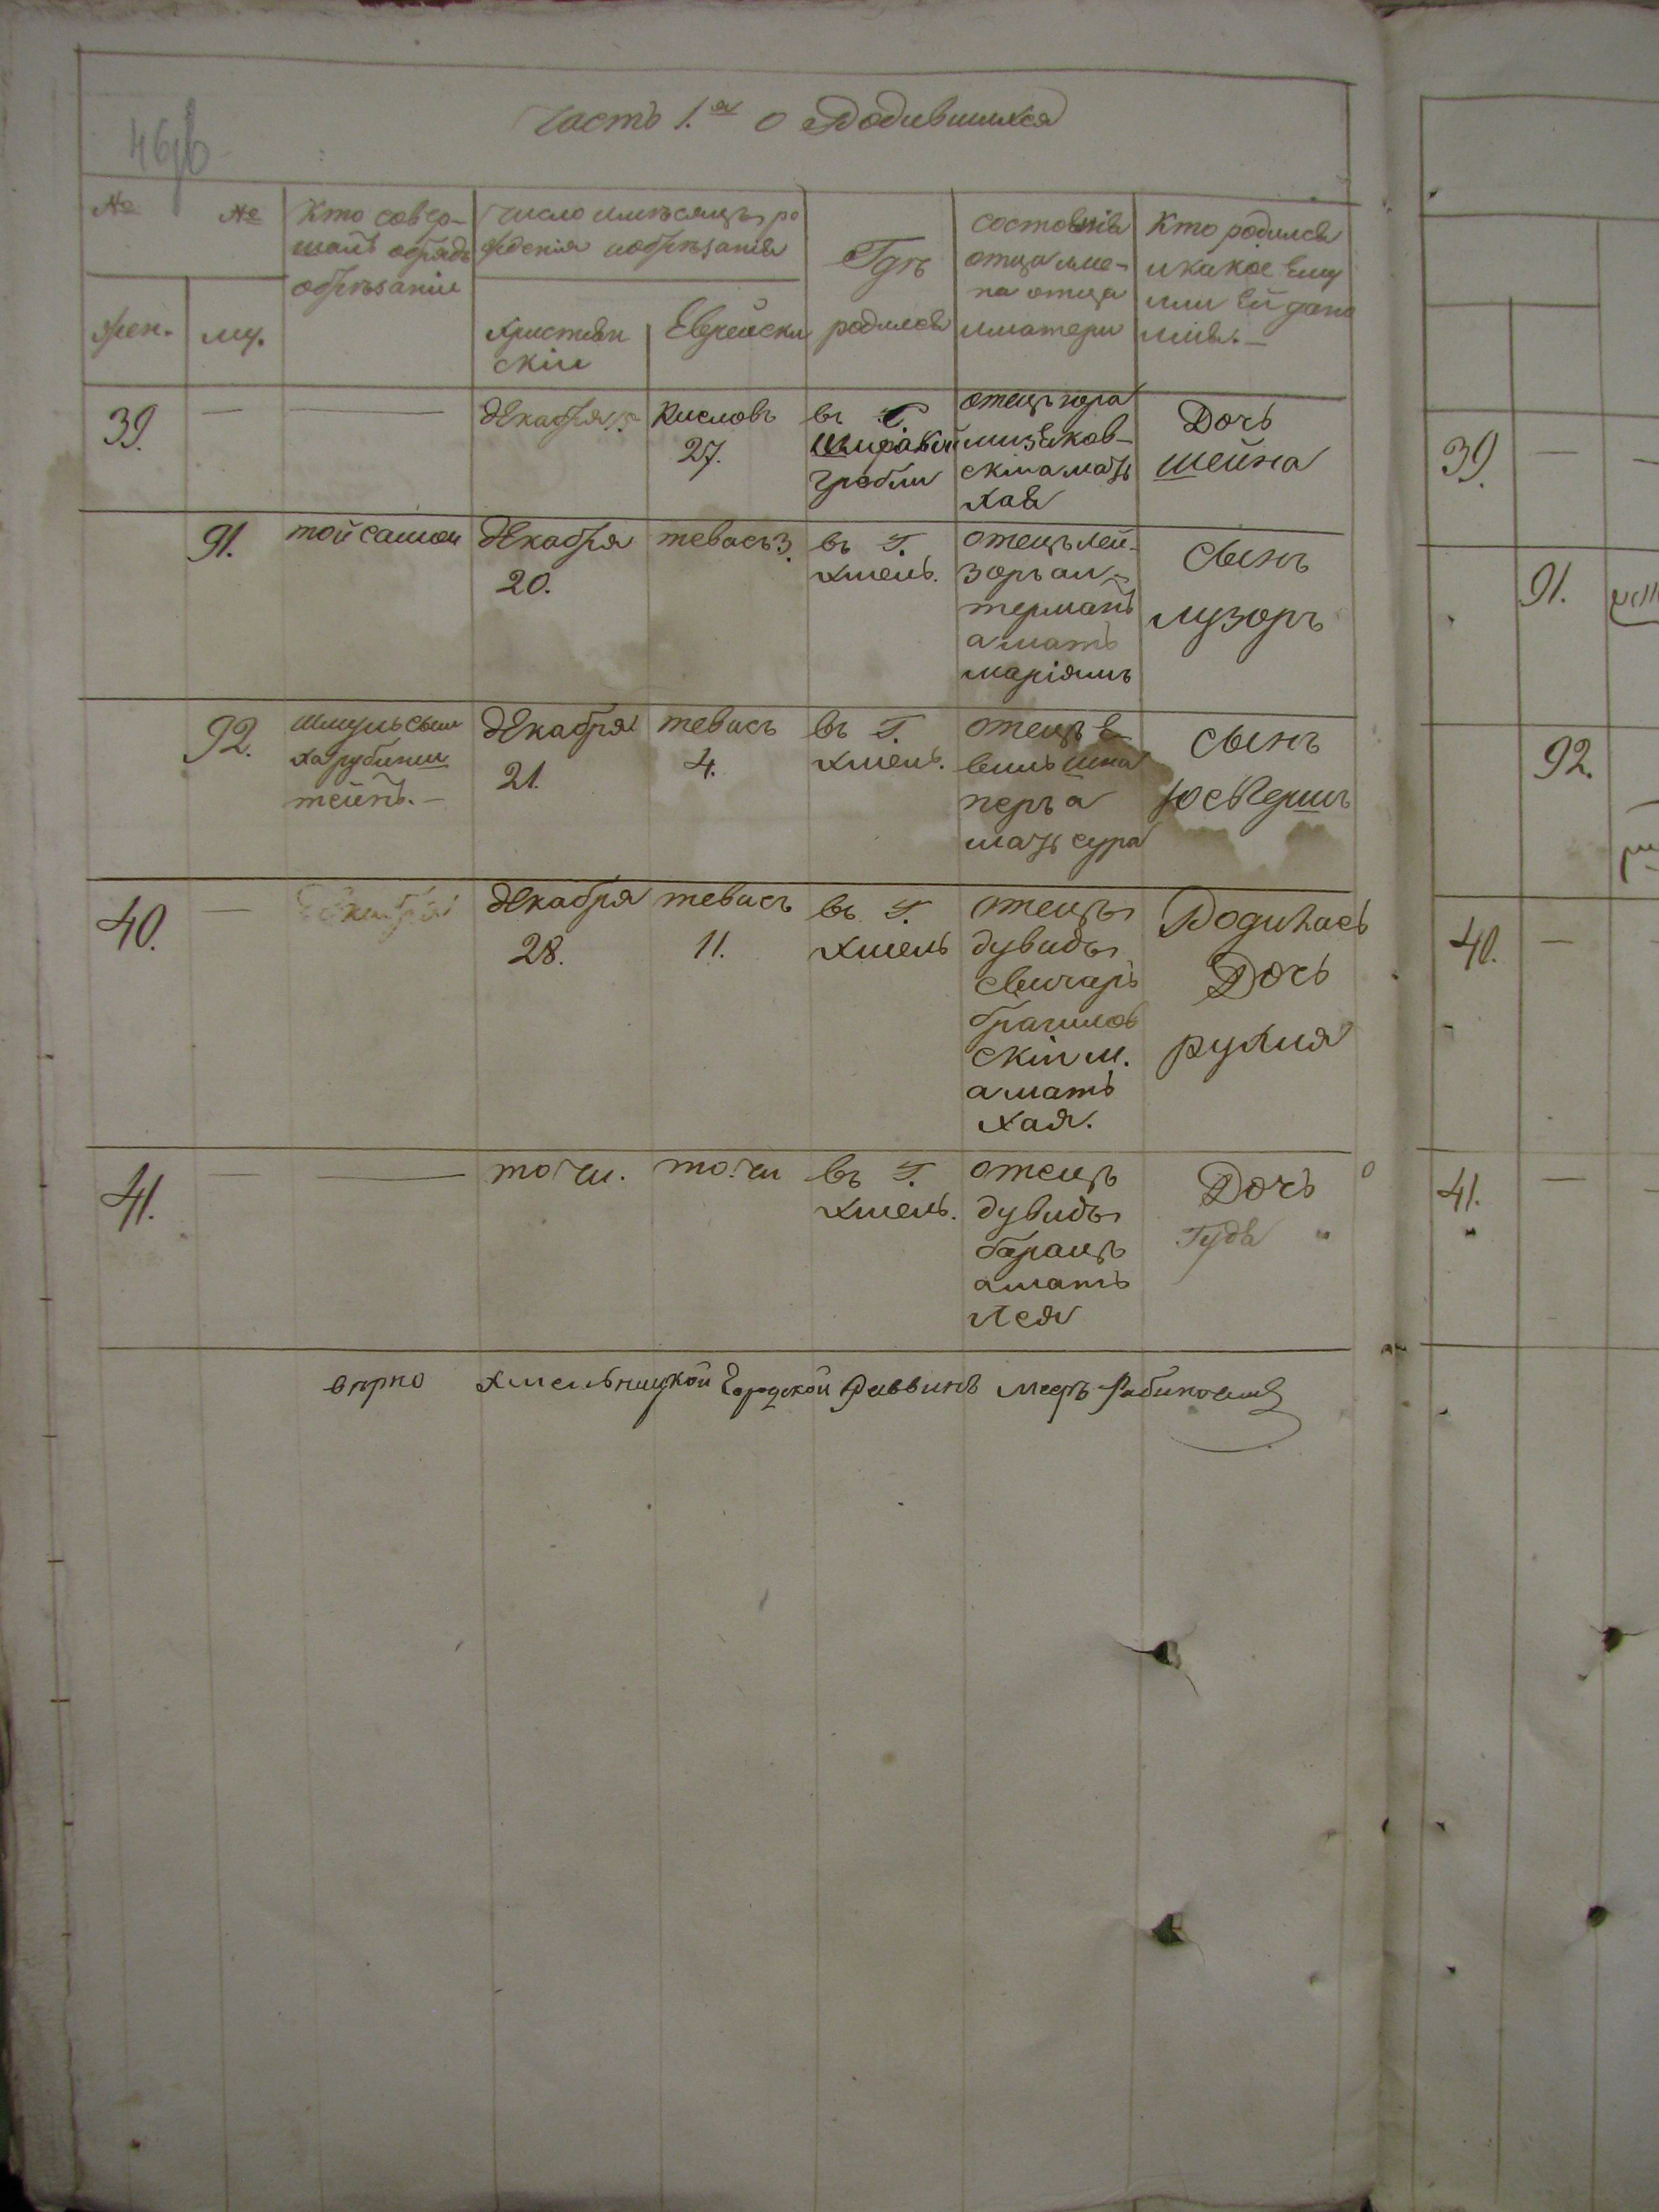 Часть 1.я о Родившихся
№ №
Кто совер-
шалъ обрядъ
обрѣзанія
число имѣсяцъ ро
жденія иобрѣзанія
Гдѣ
родился
состоянія
отца име-
на отца
иматери
Кто родился
икакое Ему
или Ей дано
имя. —
жен. му.
Христіян
скій
Еврейски
39. — — декабря Кисловъ
27.
въ С.
гребли
отецъ
мизяков-
скіи а мать
хая
Дочь
шейна
91. той самой декабря
20.
тевасъ 3. въ Г.
хмель.
отецъ лей-
зоръ ал-
терманъ
а мать
маріямъ
Сынъ
лузоръ
92. шмуль сым
ха рубинш
тейнъ. —
декабря
21.
тевасъ
4.
въ Г.
хмель.
отецъ
шна
перъ а
мать сура
сынъ
40. — декабря
28.
тевасъ
11.
въ Г.
хмель
отецъ
дувидъ
свичаръ
браилов
скіи м.
а мать
хая.
Родилась
Дочь
рухля
41. — — точи. то.чи въ Г.
хмель.
отецъ
дувидъ
баранъ
а мать
лея
Дочь
вѣрно Хмельницкой Городской Раввинъ Мееръ Рабиновичъ
39. —
91.
92.
40. —
41. —